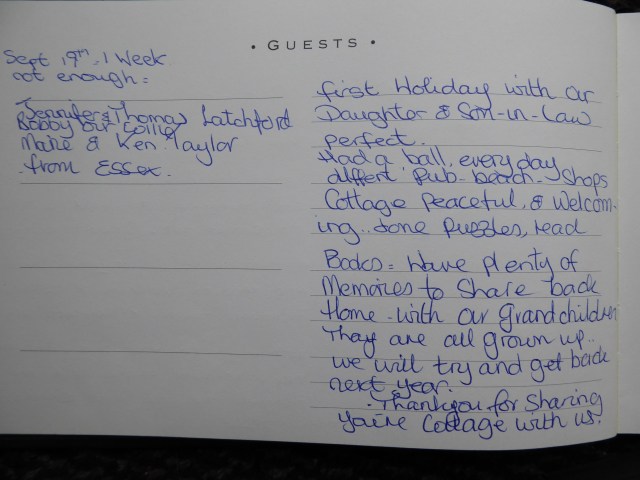 • GUESTS •
Sept 19th : 1 Week
not enough =
Jennifer & Thomas Latchford
Bobby our Collie
Marie & Ken Taylor
from Essex.
first Holiday with our
Daughter & Son-in-Law
perfect.
Had a ball, every day
different Pub - beach - Shops
Cottage peaceful, & Welcom-
ing.. done puzzles, read
Books = Have plenty of
Memories to Share back
Home - with our Grandchildren
They are all grown up..
we will try and get back
next year.
. Thankyou for Sharing
you're Cottage with us.